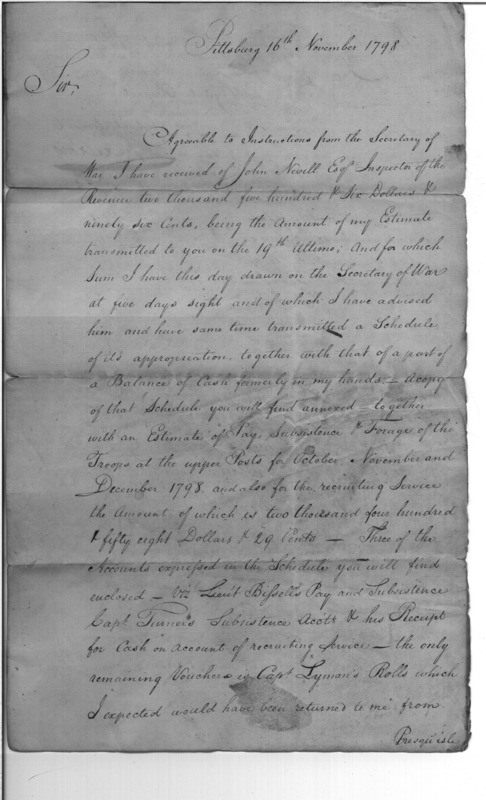 Pittsburg 16th November 1798
Sir,
Agreeable to Instructions from the Secretary of
War I have received of John Nevill Esqr Inspector of the
Revenue two thousand five hundred & Six Dollars &
ninety six Cents, being the Amount of my Estimate
transmitted to you on the 19th Ultimo; And for which
Sum I have this day drawn on the Secretary of War
at five days sight and of which I have advised
him and have same time transmitted a Schedule
of it's appropriation, together with that of a part of
a Balance of Cash formerly in my hands. — A copy
of that Schedule you will find annexed — together
with an Estimate of Pay, Subsistence & Forage of the
Troops at the upper Posts for October, November and
December 1798 and also for the recruiting Service
the Amount of which is two thousand four hundred
& fifty eight Dollars & 29 Cents — Three of the
Accounts expressed in the Schedule you will find
enclosed — Vizt Lieut Bissell's Pay and Subsistence
Capt Turner's Subsistence Accots & his Receipt
for Cash on account of recruiting Service — the only
remaining Vouchers is Capt Lyman's Rolls which
I expected would have been returned to me from
Presqu'isle